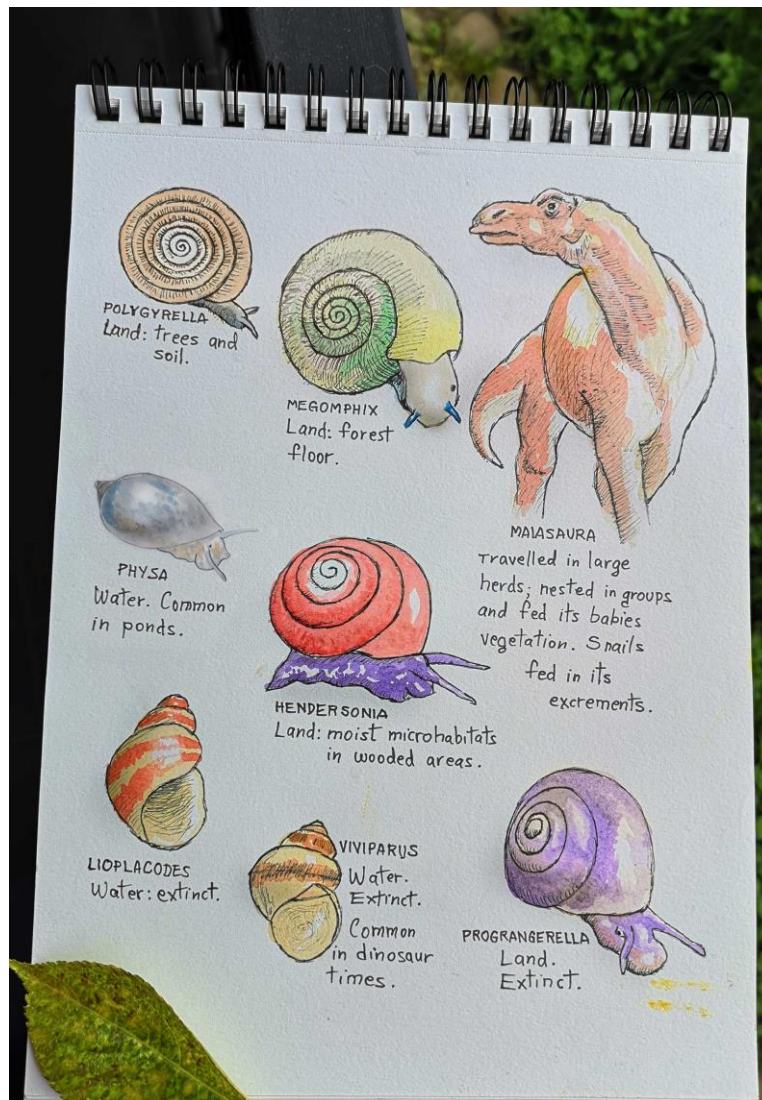 POLYGYRELLA
Land: trees and
soil.
MEGOMPHIX
Land: forest
floor.
MAIASAURA
Travelled in large
herds; nested in groups
and fed its babies
vegetation. Snails
fed in its
excrements.
PHYSA
Water. Common
in ponds.
HENDERSONIA
Land: moist microhabitats
in wooded areas.
LIOPLACODES
Water: extinct.
VIVIPARUS
Water.
Extinct.
Common
in dinosaur
times.
PROGRANGERELLA
Land.
Extinct.